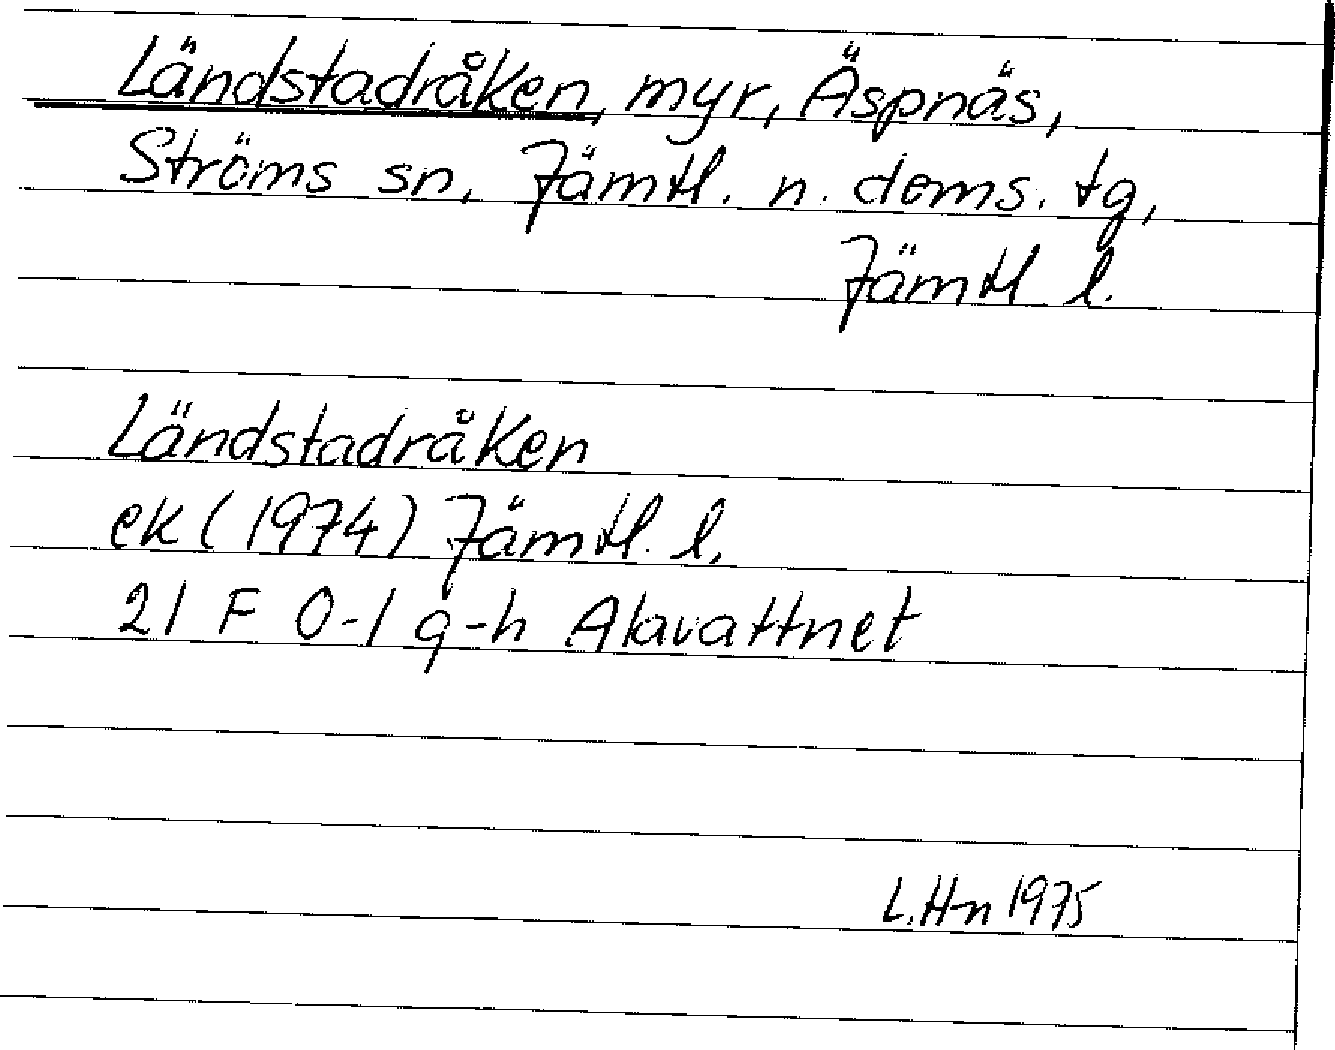 Ländstadråken, myr, Äspnäs,
Ströms sn, Jämtl. n. doms. tg,
Jämtl l.
Ländstadråken
ek (1974) Jämtl. l.
21 F 0-1 g-h Alavattnet
L.H-n 1975